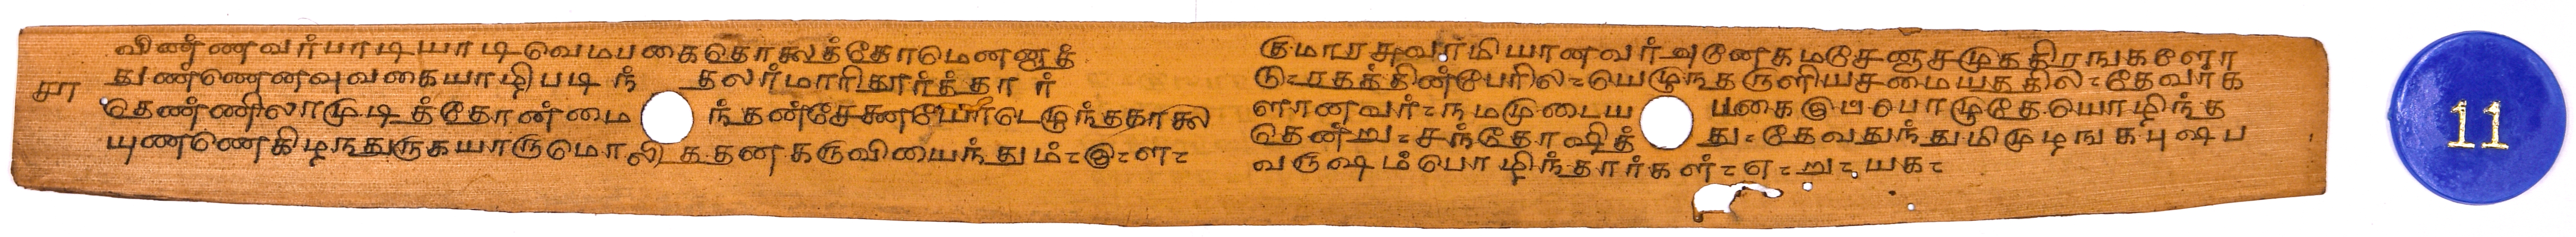 விண்ணவர்பாடியாடிவெமபகைதொலைத்தோமெனனுந்
துண்ணெனவுவகையாழிபடிந் தலர்மாரிதூர்த்தார்
சா
தெண்ணிலாமுடித்தோன்மை ந்தன்சேனையோடெழுந்ததாலை
யுணணெகிழநதுருகயாருமொலிததனகருவியைந்தும்
குமாரசுவாமியானவர்அனேகமசேனாசமுததிரஙகளோ
டு ரதத்தின்பேரில யெழுந்தருளியசமையததில தேவர்க
ளானவர் நமமுடைய பகை இப்பொழுதே யொழிந்த
தென்று சந்தோஷித் து தேவதுந்துமிமுழஙக புஷப
வருஷம்பொழிந்தார்கள் எ று யக
11